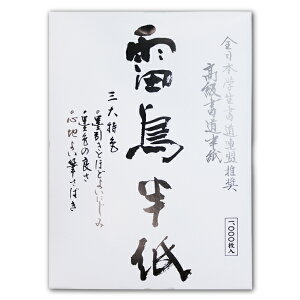 全日本学生書道連盟推奨
高級書道半紙
一、〇〇〇枚入
雷鳥半紙
三大特色
・墨引きとほどよいにじみ
・墨色の良さ
・心地よい筆さばき